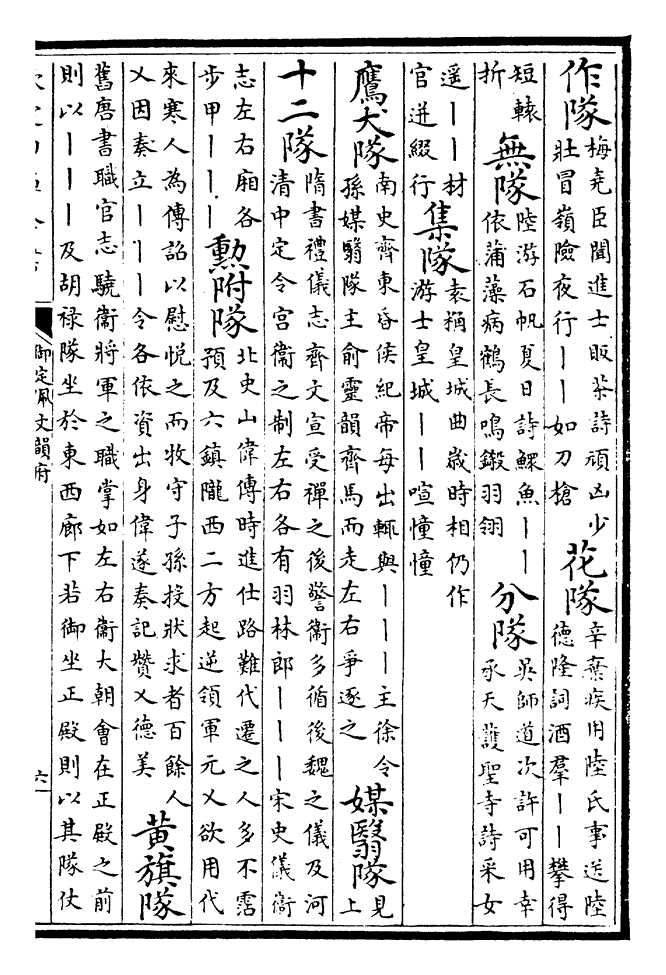 作隊
梅堯臣聞進士販茶詩頑凶少
壯冒嶺險夜行——如刀槍
花隊
辛棄疾用陸氏事送陸
德隆詞酒羣——攀得
短轅
折
無隊
陸游石帆夏日詩鰥魚——
依蒲藻病鶴長鳴鎩羽翎
分隊
吳師道次許可用幸
承天護聖寺詩采女
遥——材
官迸綴行
集隊
袁桷皇城曲歲時相仍作
游士皇城——喧憧憧
鷹犬隊
南史齊東昏侯紀帝每出輒與———主徐令
孫媒翳隊主俞靈韻齊馬而走左右爭逐之
媒翳隊
見
上
十二隊
隋書禮儀志齊文宣受禪之後警衞多循後魏之儀及河
清中定令宮衞之制左右各有羽林郎———宋史儀衞
志左右廂各
步甲———
勲附隊
北史山偉傳時進仕路難代遷之人多不霑
預及六鎮隴西二方起逆領軍元乂欲用代
來寒人為傳詔以慰悦之而牧守子孫投狀求者百餘人
乂因奏立———令各依資出身偉遂奏記贊乂德美
黃旗隊
舊唐書職官志驍衞將軍之職掌如左右衞大朝會在正殿之前
則以———及胡祿隊坐於東西廊下若御坐正殿則以其隊仗
御定佩文韻府